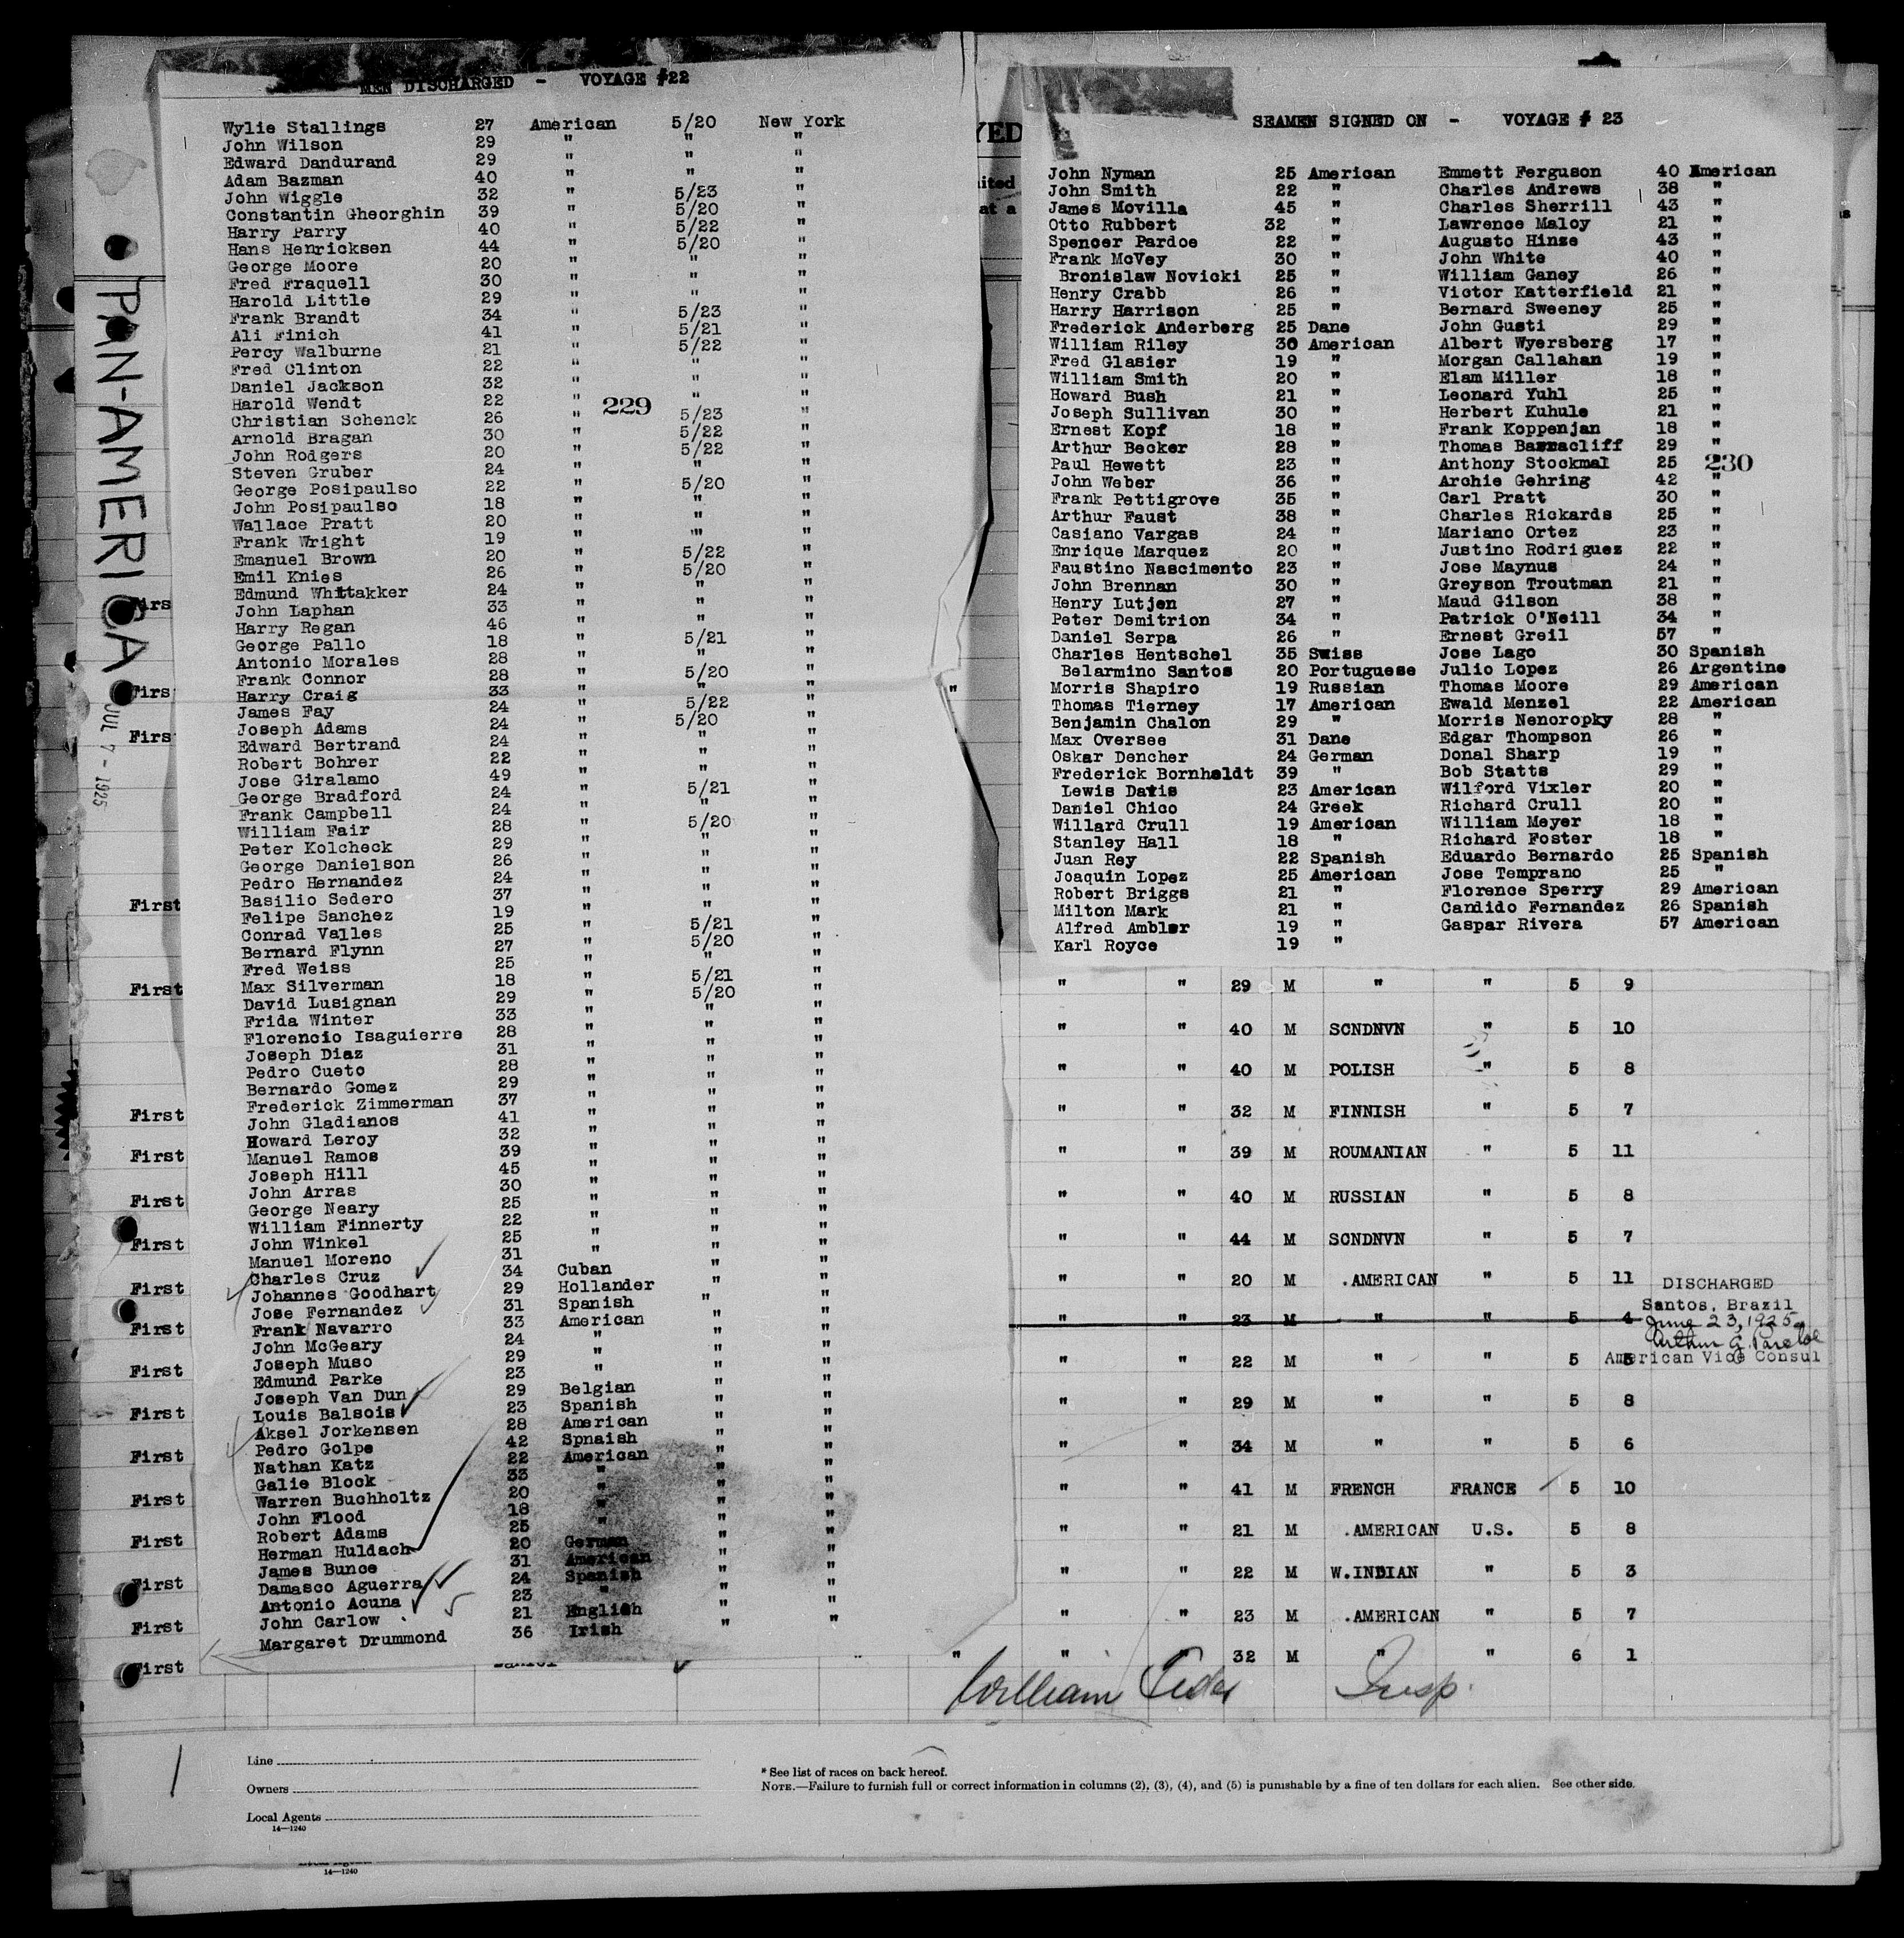 MEN DISCHARGED - VOYAGE #22
Wylie Stallings 27 American 5/20 New York
John Wilson 29 " " "
Edward Dandurand 29 " " "
Adam Bazman 40 " " "
John Wiggle 32 " 5/23 "
Constantin Gheorghin 39 " 5/20 "
Harry Parry 40 " 5/22 "
Hans Henricksen 44 " 5/20 "
George Moore 20 " " "
Fred Fraquell 30 " " "
Harold Little 29 " " "
Frank Brandt 34 " 5/23 "
Ali Finich 41 " 5/21 "
Percy Walburne 21 " 5/22 "
Fred Clinton 22 " " "
Daniel Jackson 32 " " "
Harold Wendt 22 " " "
229
Christian Schenck 26 " 5/23 "
Arnold Bragan 30 " 5/22 "
John Rodgers 20 " 5/22 "
Steven Gruber 24 " " "
George Posipaulso 22 " 5/20 "
John Posipaulso 18 " " "
Wallace Pratt 20 " " "
Frank Wright 19 " " "
Emanuel Brown 20 " 5/22 "
Emil Knies 26 " 5/20 "
Edmund Whittakker 24 " " "
John Laphan 33 " " "
Harry Regan 46 " " "
George Pallo 18 " 5/21 "
Antonio Morales 28 " " "
Frank Connor 28 " 5/20 "
Harry Craig 33 " " "
James Fay 24 " 5/22 "
Joseph Adams 24 " 5/20 "
Edward Bertrand 24 " " "
Robert Bohrer 22 " " "
Jose Giralamo 49 " " "
George Bradford 24 " 5/21 "
Frank Campbell 24 " " "
William Fair 28 " 5/20 "
Peter Kolcheck 29 " " "
George Danielson 26 " " "
Pedro Hernandez 24 " " "
Basilio Sedero 37 " " "
Felipe Sanchez 19 " " "
Conrad Valles 25 " 5/21 "
Bernard Flynn 27 " 5/20 "
Fred Weiss 25 " " "
Max Silverman 18 " 5/21 "
David Lusignan 29 " 5/20 "
Frida Winter 33 " " "
Florencio Isaguierre 28 " " "
Joseph Diaz 31 " " "
Pedro Cueto 28 " " "
Bernardo Gomez 29 " " "
Frederick Zimmerman 37 " " "
John Gladianos 41 " " "
Howard Leroy 32 " " "
Manuel Ramos 39 " " "
Joseph Hill 45 " " "
John Arras 30 " " "
George Neary 25 " " "
William Finnerty 22 " " "
John Winkel 25 " " "
Manuel Moreno 31 " " "
Charles Cruz 34 Cuban " "
Johannes Goodhart 29 Hollander " "
Jose Fernandez 31 Spanish " "
Frank Navarro 33 American " "
John McGeary 24 " " "
Joseph Muso 29 " " "
Edmund Parke 23 " " "
Joseph Van Dun 29 Belgian " "
Louis Balsois 23 Spanish " "
Aksel Jorkensen 28 American " "
Pedro Golpe 42 Spnaish " "
Nathan Katz 22 American " "
Galie Block 33 " " "
Warren Buchholtz 20 " " "
John Flood 18 " " "
Robert Adams 25 " " "
Herman Huldach 20 German " "
James Bunce 31 American " "
Damasco Aguerra 24 Spanish " "
Antonio Acuna 23 " " "
John Carlow 21 English " "
Margaret Drummond 36 Irish " "
PAN-AMERICA
JUL 7 - 1925
First
First
First
First
First
First
First
First
First
First
First
First
First
First
First
First
First
First
SEAMEN SIGNED ON - VOYAGE # 23
John Nyman 25 American Emmett Ferguson 40 American
John Smith 22 " Charles Andrews 38 "
James Movilla 45 " Charles Sherrill 43 "
Otto Rubbert 32 " Lawrence Maloy 21 "
Spencer Pardoe 22 " Augusto Hinze 43 "
Frank McVey 30 " John White 40 "
Bronislaw Novicki 25 " William Ganey 26 "
Henry Crabb 26 " Victor Katterfield 21 "
Harry Harrison 25 " Bernard Sweeney 25 "
Frederick Anderberg 25 Dane John Gusti 29 "
William Riley 30 American Albert Wyersberg 17 "
Fred Glasier 19 " Morgan Callahan 19 "
William Smith 20 " Elam Miller 18 "
Howard Bush 21 " Leonard Yuhl 25 "
Joseph Sullivan 30 " Herbert Kuhule 21 "
Ernest Kopf 18 " Frank Koppenjan 18 "
Arthur Becker 28 " Thomas Barracliff 29 "
Paul Hewett 23 " Anthony Stockmal 25 230
John Weber 36 " Archie Gehring 42 "
Frank Pettigrove 35 " Carl Pratt 30 "
Arthur Faust 38 " Charles Rickards 25 "
Casiano Vargas 24 " Mariano Ortez 23 "
Enrique Marquez 20 " Justino Rodriguez 22 "
Faustino Nascimento 23 " Jose Maynus 24 "
John Brennan 30 " Greyson Troutman 21 "
Henry Lutjen 27 " Maud Gilson 38 "
Peter Demitrion 34 " Patrick O'Neill 34 "
Daniel Serpa 26 " Ernest Greil 57 "
Charles Hentschel 35 Swiss Jose Lago 30 Spanish
Belarmino Santos 20 Portuguese Julio Lopez 26 Argentine
Morris Shapiro 19 Russian Thomas Moore 29 American
Thomas Tierney 17 American Ewald Menzel 22 American
Benjamin Chalon 29 " Morris Nenoropky 28 "
Max Oversee 31 Dane Edgar Thompson 26 "
Oskar Dencher 24 German Donal Sharp 19 "
Frederick Bornholdt 39 " Bob Statts 29 "
Lewis Davis 23 American Wilford Vixler 20 "
Daniel Chico 24 Greek Richard Crull 20 "
Willard Crull 19 American William Meyer 18 "
Stanley Hall 18 " Richard Foster 18 "
Juan Rey 22 Spanish Eduardo Bernardo 25 Spanish
Joaquin Lopez 25 American Jose Temprano 25 "
Robert Briggs 21 " Florence Sperry 29 American
Milton Mark 21 " Candido Fernandez 26 Spanish
Alfred Ambler 19 " Gaspar Rivera 57 American
Karl Royce 19 "
" " 29 M " " 5 9
" " 40 M SCNDNVN " 5 10
" " 40 M POLISH " 5 8
" " 32 M FINNISH " 5 7
" " 39 M ROUMANIAN " 5 11
" " 40 M RUSSIAN " 5 8
" " 44 M SCNDNVN " 5 7
" " 20 M .AMERICAN " 5 11
DISCHARGED
Santos, Brazil
" " 23 M " " 5 4
June 23, 1925
" " 22 M " " 5 5
American Vice Consul
" " 29 M " " 5 8
" " 34 M " " 5 6
" " 41 M FRENCH FRANCE 5 10
" " 21 M .AMERICAN U.S. 5 8
" " 22 M W.INDIAN " 5 3
" " 23 M .AMERICAN " 5 7
" " " 32 M " " 6 1
William Insp.
Line
Owners
Local Agents
14—1240
* See list of races on back hereof.
NOTE.—Failure to furnish full or correct information in columns (2), (3), (4), and (5) is punishable by a fine of ten dollars for each alien. See other side.
14—1240